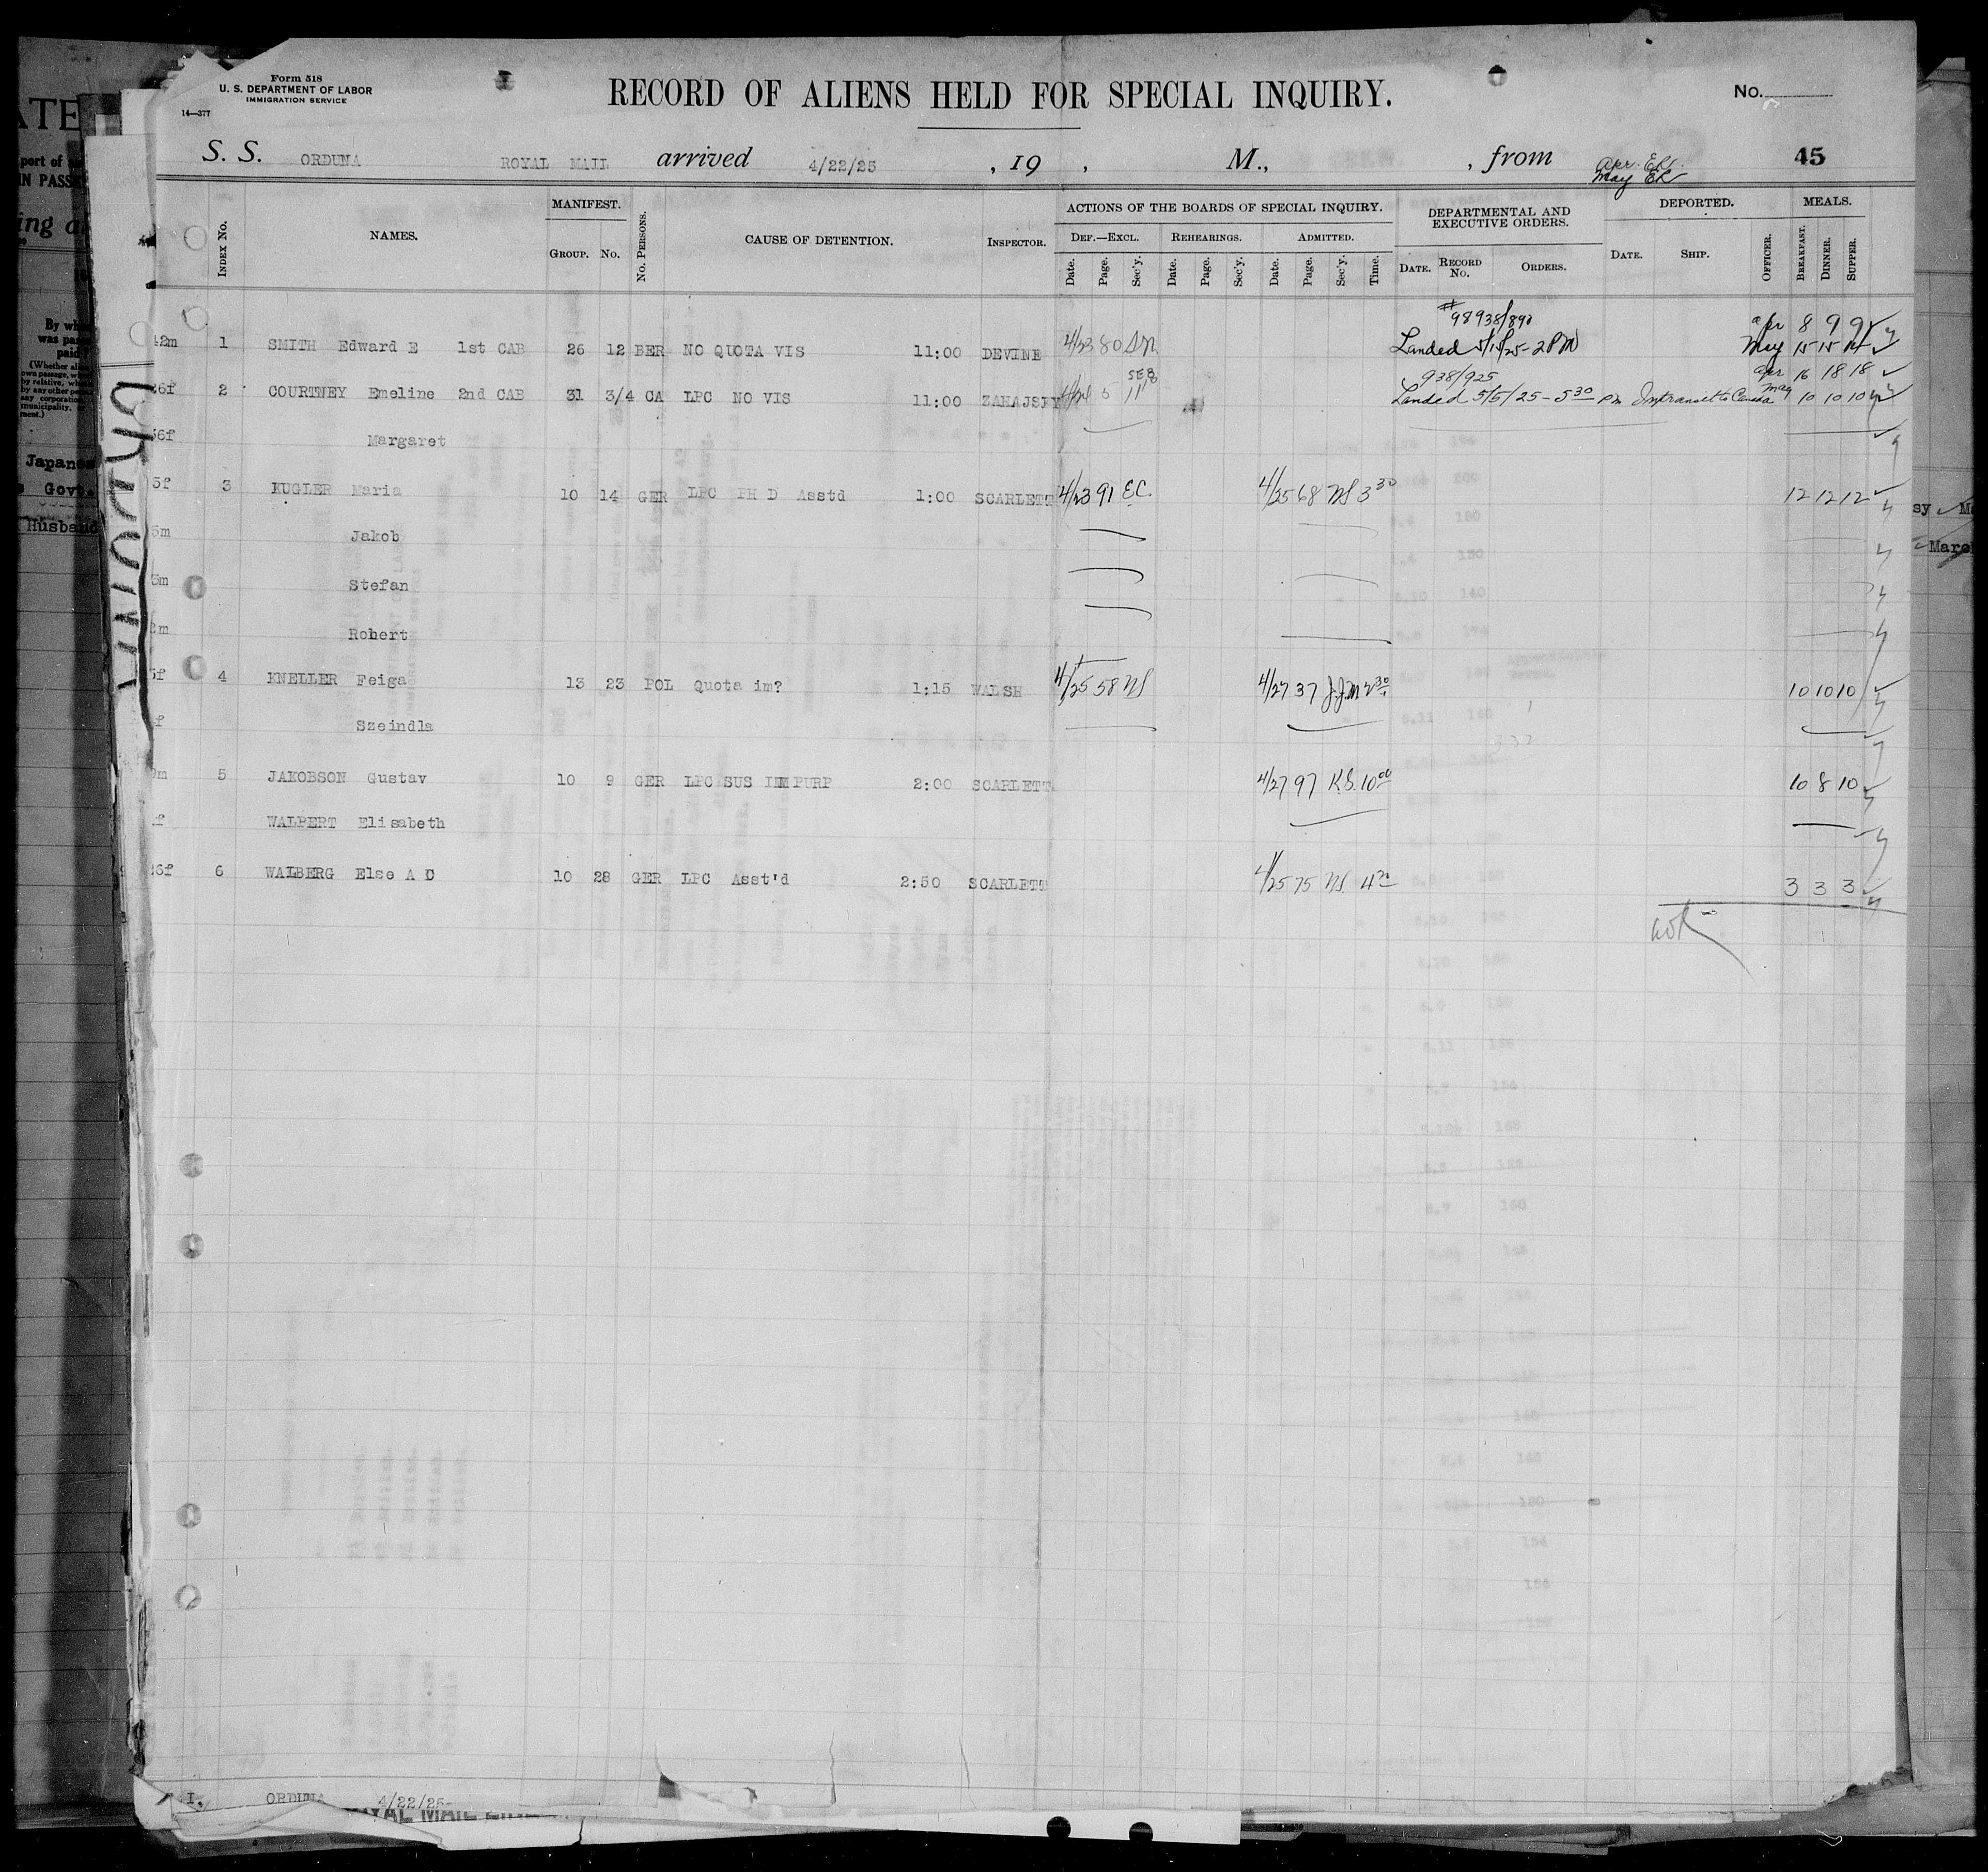 Form 518
U. S. DEPARTMENT OF LABOR
IMMIGRATION SERVICE
14—377
RECORD OF ALIENS HELD FOR SPECIAL INQUIRY.
No.
S. S. ORDUNA ROYAL MAIL arrived 4/22/25 , 19 , M., , from
Apr. EK.
May EK
45
INDEX No.
NAMES.
MANIFEST.
GROUP. No.
No. PERSONS.
CAUSE OF DETENTION.
INSPECTOR.
ACTIONS OF THE BOARDS OF SPECIAL INQUIRY.
DEF.—EXCL. REHEARINGS. ADMITTED.
Date. Page. Sec'y. Date. Page. Sec'y. Date. Page. Sec'y. Time.
DEPARTMENTAL AND
EXECUTIVE ORDERS.
DATE. RECORD No. ORDERS.
DEPORTED.
DATE. SHIP. OFFICER.
MEALS.
BREAKFAST. DINNER. SUPPER.
#98938/890 Apr 8 9 9
42m 1 SMITH Edward E 1st CAB 26 12 BER NO QUOTA VIS 11:00 DEVINE 4/23 80 Landed 5/15/25 - 2 PM May 15 15 14
938/925 Apr 16 18 18
26f 2 COURTNEY Emeline 2nd CAB 31 3/4 CA LPC NO VIS 11:00 ZAHAJSKY 5 Landed 5/5/25 - 5 30 PM Intransit to Canada May 10 10 10
56f Margaret
5f 3 KUGLER Maria 10 14 GER LPC PH D Asstd 1:00 SCARLETT 4/23 91 E.C. 4/25 68 NS 3 30 12 12 12
5m Jakob
3m Stefan
2m Robert
5f 4 KNELLER Feiga 13 23 POL Quota im? 1:15 WALSH 4/25 58 NS 4/27 37 JJM 2 30 10 10 10
f Szeindla
0m 5 JAKOBSON Gustav 10 9 GER LPC SUS IMMPURP 2:00 SCARLETT 4/27 97 K.S. 10 00 10 8 10
f WALPERT Elisabeth
26f 6 WALBERG Else A C 10 28 GER LPC Asst'd 2:50 SCARLETT 4/25 75 NS 3 3 3
I. ORDUNA 4/22/25
ROYAL MAIL LINE
ORDUNA
By who
was passage
paid?
Japanese
Govt.
Husband